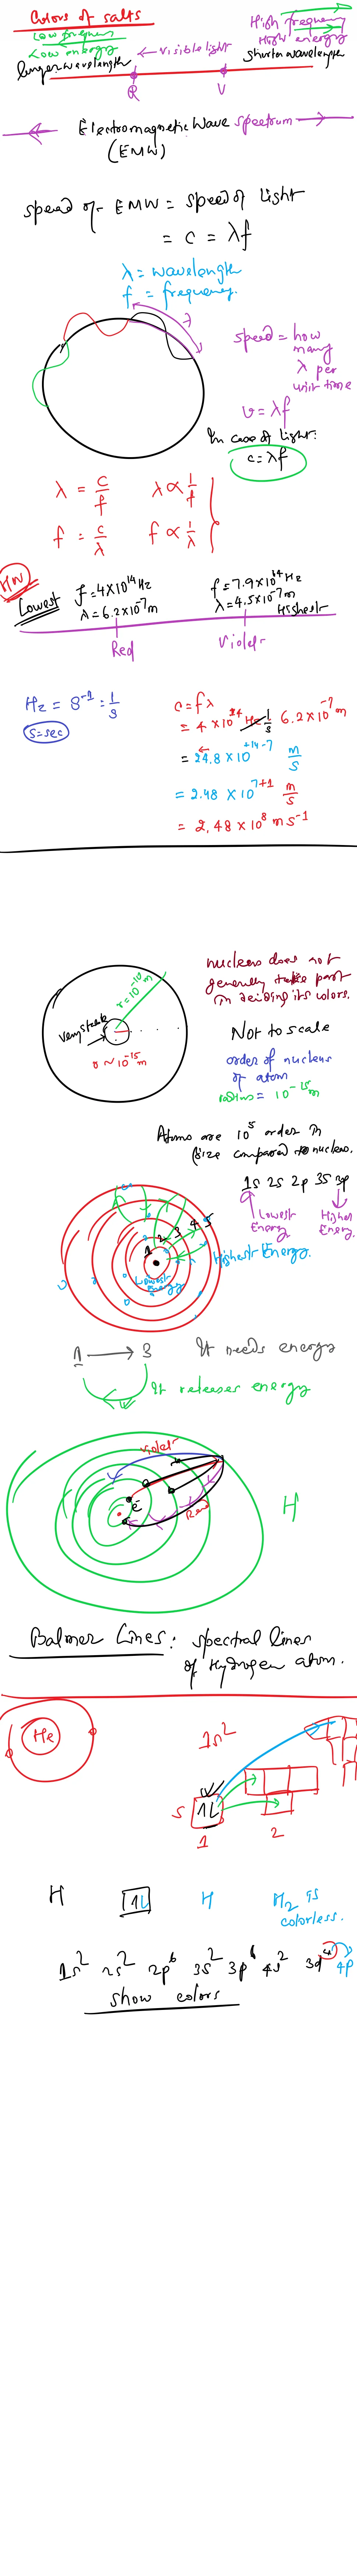 Colors of salts
Low frequency
Low energy
longer wavelength
← Visible light
High frequency
High energy
shorter wavelength
R
V
Electromagnetic Wave spectrum
(EMW)
speed of EMW = speed of light
= c = λf
λ = wavelength
f = frequency.
λ
speed = how
many
λ per
unit time
v = λf
In case of light:
c = λf
λ = c/f
λ ∝ 1/f
f = c/λ
f ∝ 1/λ
HW
Lowest
f = 4×10¹⁴ Hz
λ = 6.2×10⁻⁷ m
f = 7.9×10¹⁴ Hz
λ = 4.5×10⁻⁷ m
Highest
Red
Violet
Hz = s⁻¹ = 1/s
s = sec
c = fλ
= 4×10¹⁴ Hz 1/s 6.2×10⁻⁷ m
= 24.8×10⁺¹⁴⁻⁷ m/s
= 2.48×10⁷⁺¹ m/s
= 2.48×10⁸ ms⁻¹
nucleus does not
generally take part
in deciding its colors.
r=10⁻¹⁰ m
~10⁻¹⁵ m
Not to scale
order of nucleus
of atom
radius = 10⁻¹⁵ m
Atoms are 10⁵ order in
size compared to nucleus.
1s 2s 2p 3s 3p
Lowest
Energy
Highest
Energy
1 2 3 4 5
Highest Energy.
Lowest
Energy
1 → 3
It needs energy
It releases energy
Violet
Red
e
H
Balmer Lines: spectral lines
of Hydrogen atom.
He
1s²
s
1
2
H
1L
H
H₂ is
colorless.
1s² 2s² 2p⁶ 3s² 3p⁶ 4s² 3d⁴ 4p
show colors